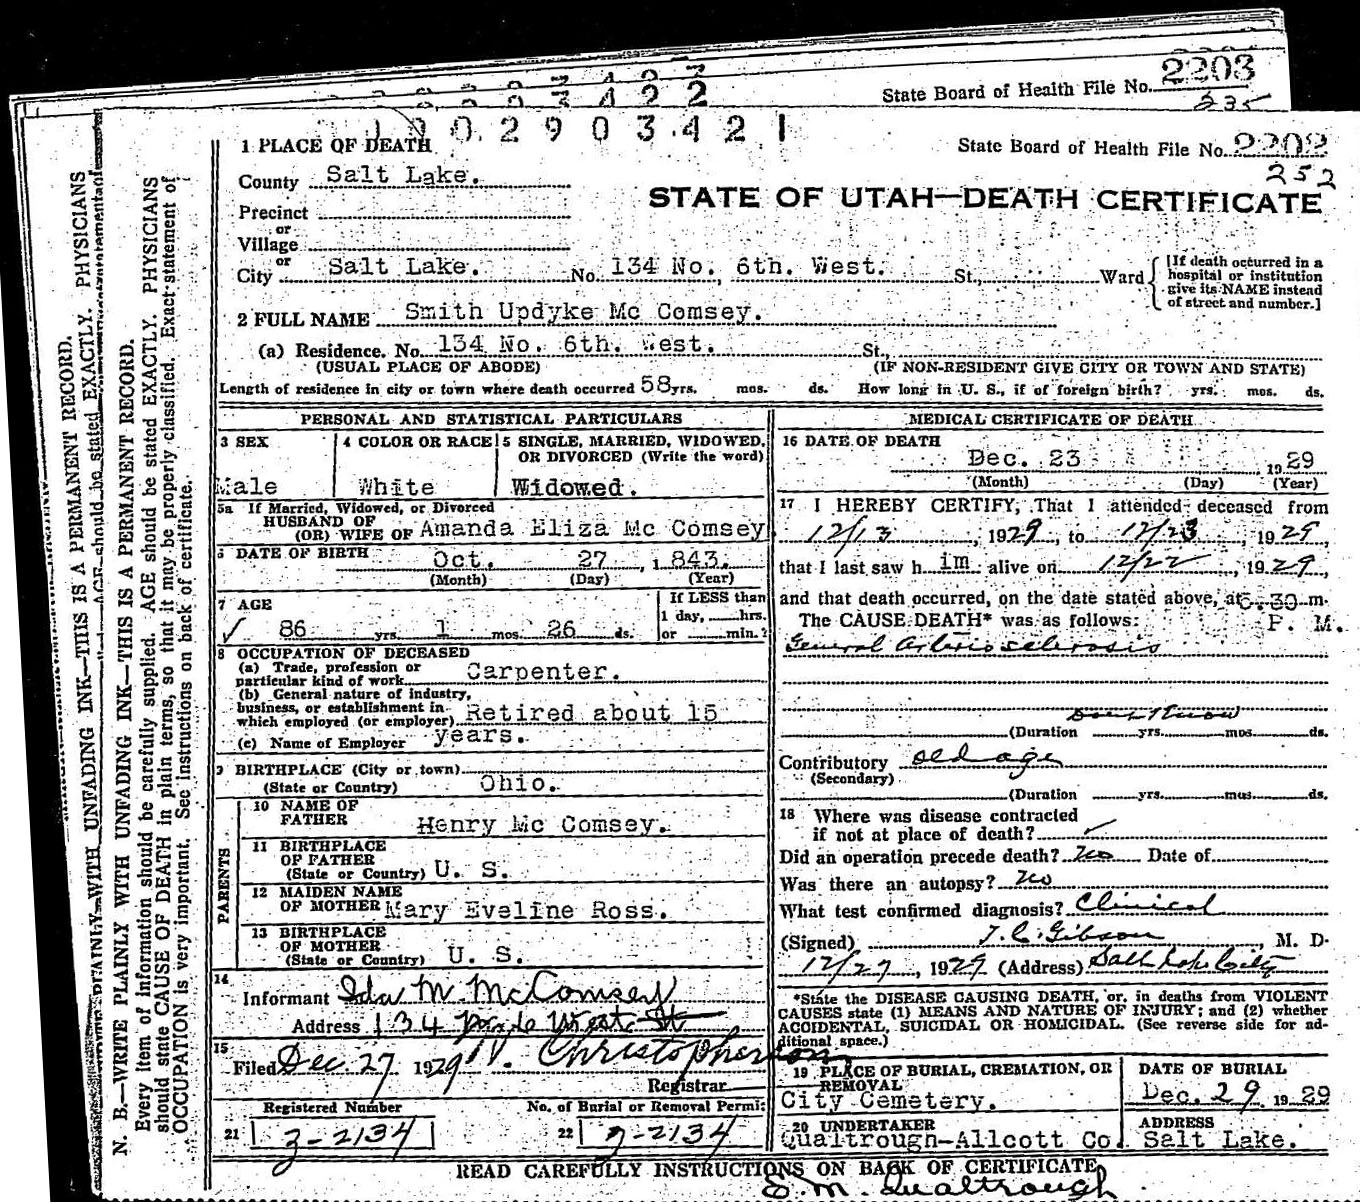 State Board of Health File No. 2203
235
1 0 0 2 9 0 3 4 2 1
1 PLACE OF DEATH
State Board of Health File No. 2202
252
County Salt Lake.
STATE OF UTAH—DEATH CERTIFICATE
Precinct
or
Village
or
City Salt Lake. No. 134 No. 6th. West. St., Ward
[If death occurred in a hospital or institution give its NAME instead of street and number.]
2 FULL NAME Smith Updyke Mc Comsey.
(a) Residence. No. 134 No. 6th. West. St.,
(USUAL PLACE OF ABODE) (IF NON-RESIDENT GIVE CITY OR TOWN AND STATE)
Length of residence in city or town where death occurred 58 yrs. mos. ds. How long in U. S., if of foreign birth? yrs. mos. ds.
PERSONAL AND STATISTICAL PARTICULARS
3 SEX
Male
4 COLOR OR RACE
White
5 SINGLE, MARRIED, WIDOWED, OR DIVORCED (Write the word)
Widowed.
5a If Married, Widowed, or Divorced
HUSBAND OF
(OR) WIFE OF Amanda Eliza Mc Comsey
6 DATE OF BIRTH Oct. 27, 1843.
(Month) (Day) (Year)
7 AGE
86 yrs. 1 mos. 26 ds.
If LESS than
1 day, hrs.
or min.?
8 OCCUPATION OF DECEASED
(a) Trade, profession or
particular kind of work Carpenter.
(b) General nature of industry,
business, or establishment in
which employed (or employer) Retired about 15
(c) Name of Employer years.
9 BIRTHPLACE (City or town)
(State or Country) Ohio.
PARENTS
10 NAME OF
FATHER Henry Mc Comsey.
11 BIRTHPLACE
OF FATHER
(State or Country) U. S.
12 MAIDEN NAME
OF MOTHER Mary Eveline Ross.
13 BIRTHPLACE
OF MOTHER
(State or Country) U. S.
14
Informant Ida M. McComsey
Address 134 West St
15
Filed Dec 27 1929 Christopherson
Registrar
Registered Number
21 2-2134
No. of Burial or Removal Permit
22 2-2134
MEDICAL CERTIFICATE OF DEATH
16 DATE OF DEATH
Dec. 23, 1929
(Month) (Day) (Year)
17 I HEREBY CERTIFY, That I attended deceased from
12/13, 1929, to 12/23, 1929,
that I last saw him alive on 12/22, 1929,
and that death occurred, on the date stated above, at 6.30 m.
The CAUSE DEATH* was as follows: P. M.
General Arteriosclerosis
Dont Know
(Duration yrs. mos. ds.
Contributory old age
(Secondary)
(Duration yrs. mos. ds.
18 Where was disease contracted
if not at place of death? ✓
Did an operation precede death? No Date of
Was there an autopsy? No
What test confirmed diagnosis? Clinical
(Signed) J. C. Gibson, M. D.
12/27, 1929 (Address) Salt Lake City
*State the DISEASE CAUSING DEATH, or, in deaths from VIOLENT
CAUSES state (1) MEANS AND NATURE OF INJURY; and (2) whether
ACCIDENTAL, SUICIDAL OR HOMICIDAL. (See reverse side for ad-
ditional space.)
19 PLACE OF BURIAL, CREMATION, OR
REMOVAL
City Cemetery.
DATE OF BURIAL
Dec. 29, 1929
20 UNDERTAKER
Qualtrough-Allcott Co.
ADDRESS
Salt Lake.
READ CAREFULLY INSTRUCTIONS ON BACK OF CERTIFICATE
E. M. Qualtrough
N. B.—WRITE PLAINLY WITH UNFADING INK—THIS IS A PERMANENT RECORD.
Every item of information should be carefully supplied. AGE should be stated EXACTLY. PHYSICIANS
should state CAUSE OF DEATH in plain terms, so that it may be properly classified. Exact statement of
OCCUPATION is very important. See instructions on back of certificate.
PLAINLY WITH UNFADING INK—THIS IS A PERMANENT RECORD.
AGE should be stated EXACTLY. PHYSICIANS